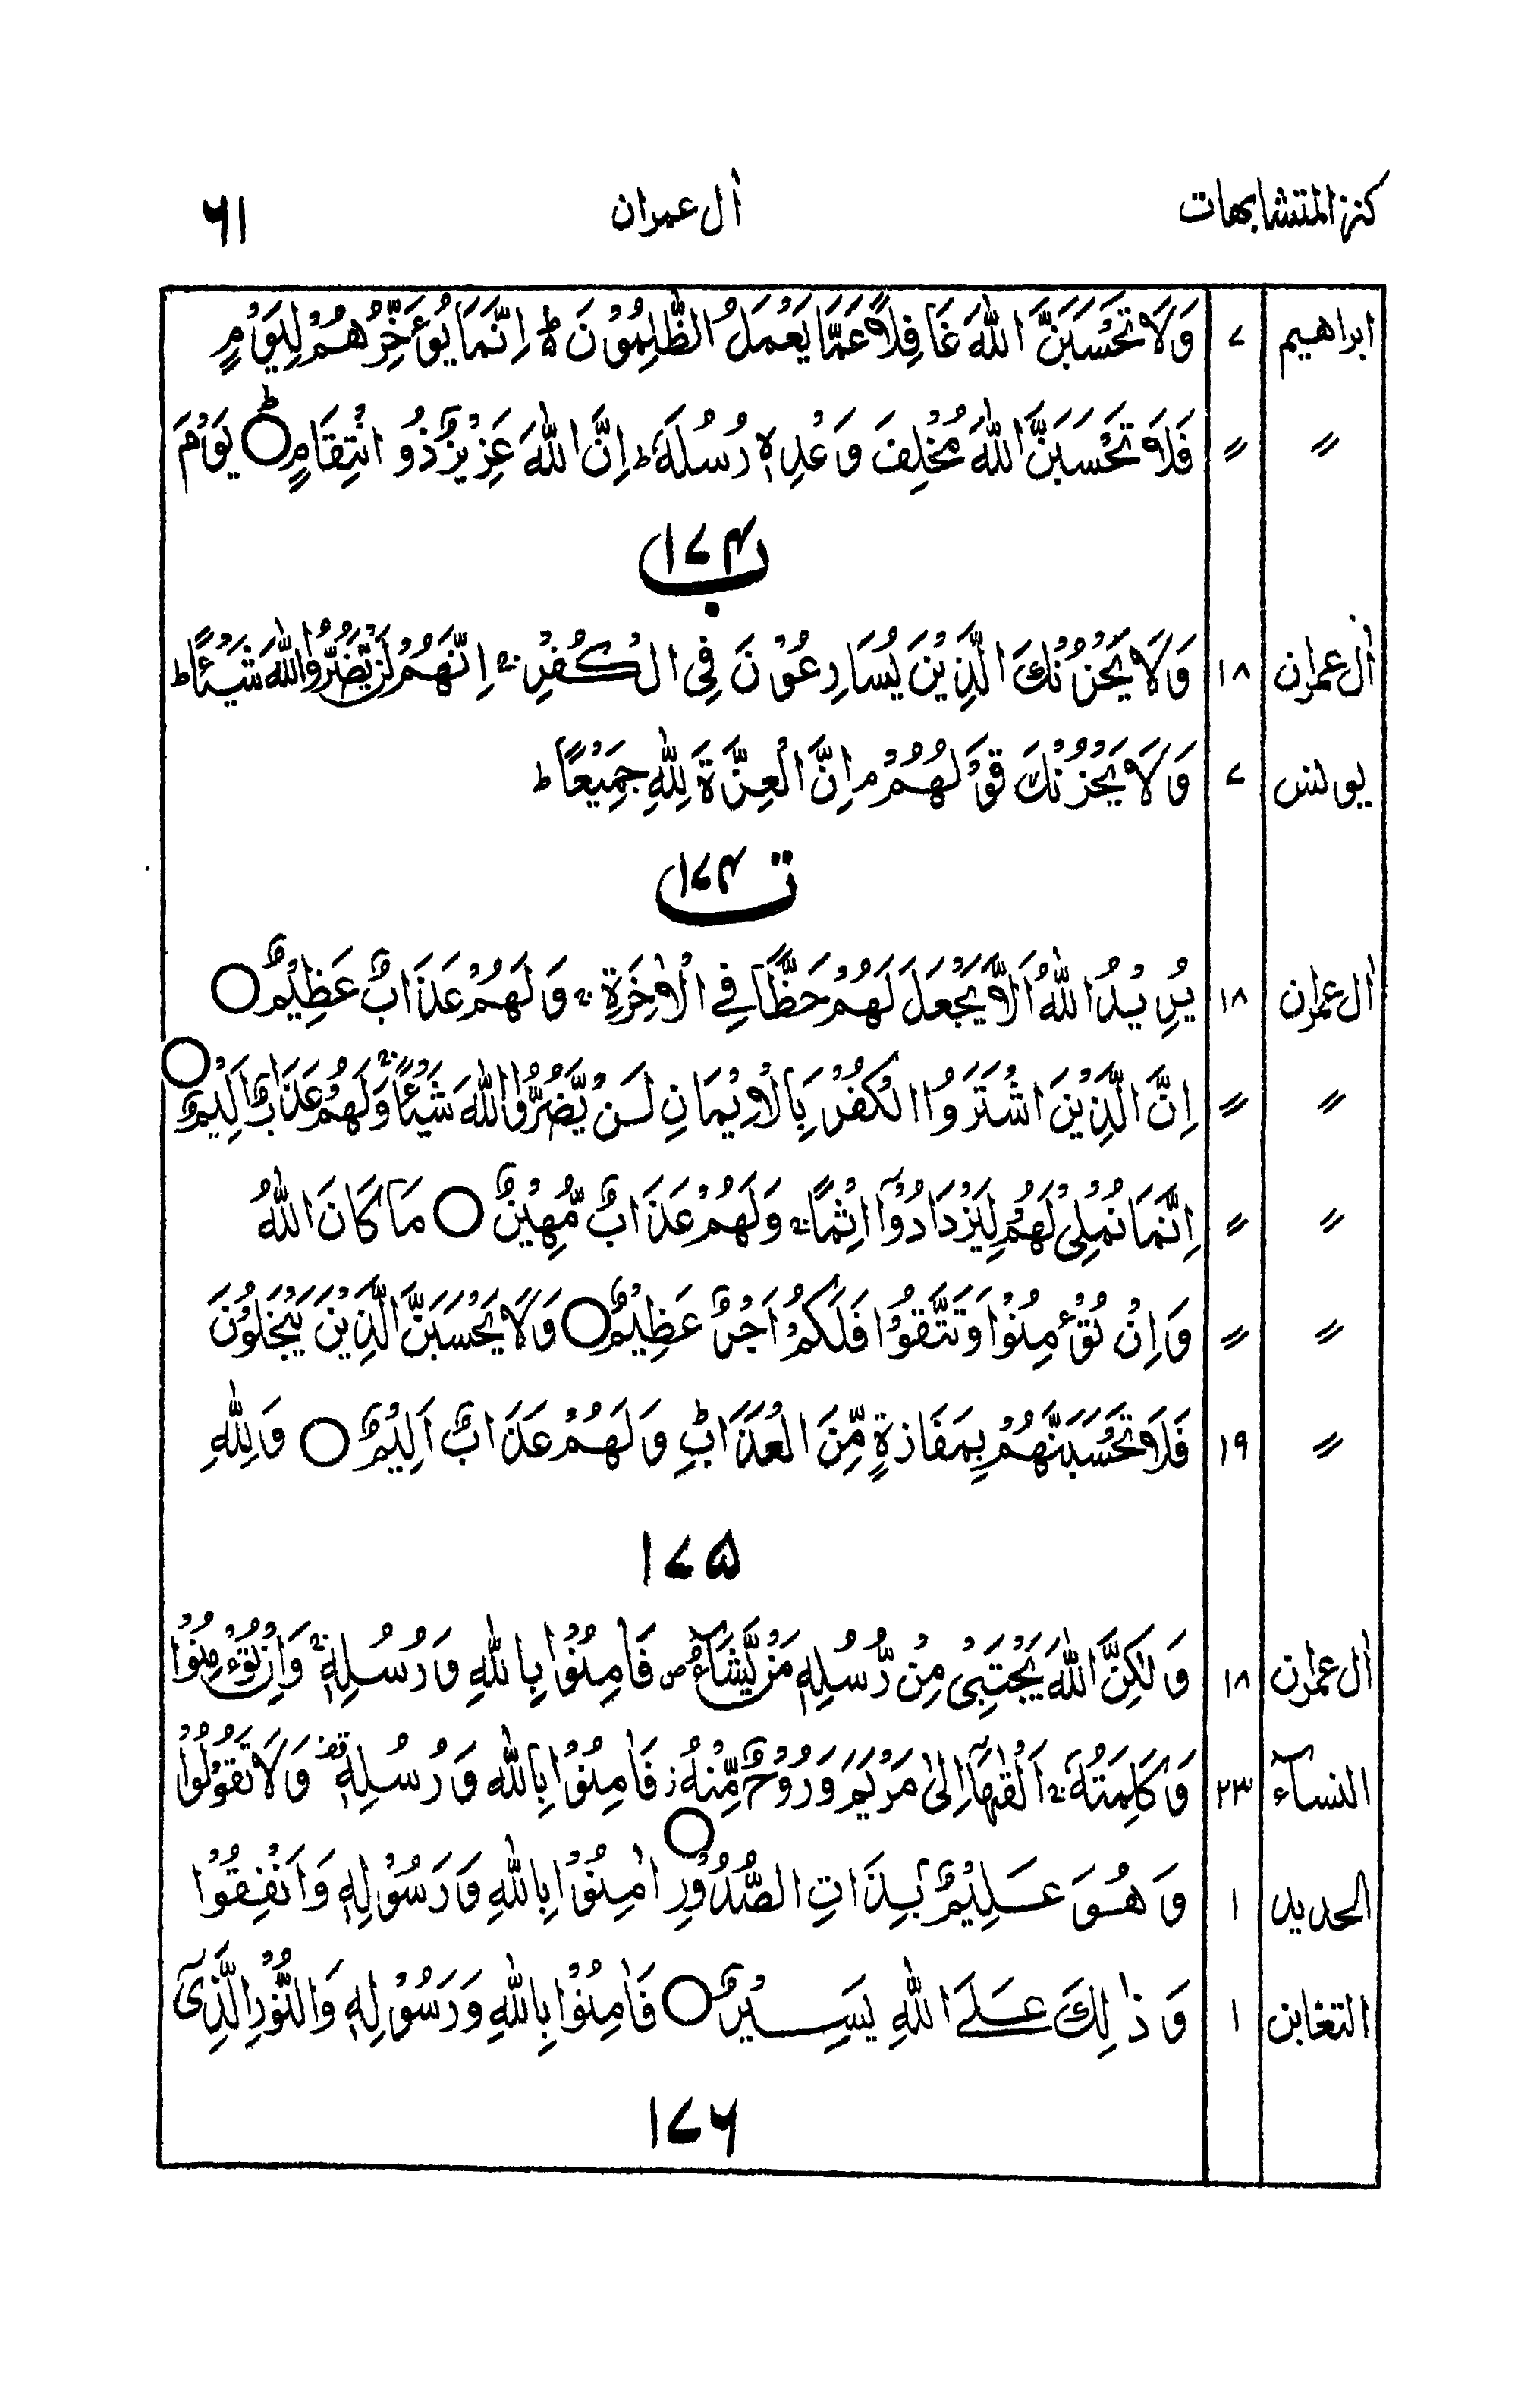 كنز المتشابهات اٰل عمران ۶۱
ابراهيم ۷ وَلَا تَحْسَبَنَّ اللّٰهَ غَافِلًا عَمَّا يَعْمَلُ الظّٰلِمُوْنَ ؕ۬ اِنَّمَا يُؤَخِّرُهُمْ لِيَوْمٍ
〃 〃 فَلَا تَحْسَبَنَّ اللّٰهَ مُخْلِفَ وَعْدِهٖ رُسُلَهٗ ؕ اِنَّ اللّٰهَ عَزِيْزٌ ذُو انْتِقَامٍ ○ؕ يَوْمَ
ب ۱۷۴
اٰل عمران ۱۸ وَلَا يَحْزُنْكَ الَّذِيْنَ يُسَارِعُوْنَ فِى الْكُفْرِ ۚ اِنَّهُمْ لَنْ يَّضُرُّوا اللّٰهَ شَيْـًٔا ؕ
يونس ۷ وَلَا يَحْزُنْكَ قَوْلُهُمْ ۘ اِنَّ الْعِزَّةَ لِلّٰهِ جَمِيْعًا ؕ
ت ۱۷۴
اٰل عمران ۱۸ يُرِيْدُ اللّٰهُ اَلَّا يَجْعَلَ لَهُمْ حَظًّا فِى الْاٰخِرَةِ ۚ وَلَهُمْ عَذَابٌ عَظِيْمٌ ○
〃 〃 اِنَّ الَّذِيْنَ اشْتَرَوُا الْكُفْرَ بِالْاِيْمَانِ لَنْ يَّضُرُّوا اللّٰهَ شَيْـًٔا ۚ وَلَهُمْ عَذَابٌ اَلِيْمٌ ○
〃 〃 اِنَّمَا نُمْلِىْ لَهُمْ لِيَزْدَادُوْٓا اِثْمًا ۚ وَلَهُمْ عَذَابٌ مُّهِيْنٌ ○ مَا كَانَ اللّٰهُ
〃 〃 وَاِنْ تُؤْمِنُوْا وَتَتَّقُوْا فَلَكُمْ اَجْرٌ عَظِيْمٌ ○ وَلَا يَحْسَبَنَّ الَّذِيْنَ يَبْخَلُوْنَ
〃 ۱۹ فَلَا تَحْسَبَنَّهُمْ بِمَفَازَةٍ مِّنَ الْعَذَابِ ۚ وَلَهُمْ عَذَابٌ اَلِيْمٌ ○ وَلِلّٰهِ
۱۷۵
اٰل عمران ۱۸ وَلٰكِنَّ اللّٰهَ يَجْتَبِىْ مِنْ رُّسُلِهٖ مَنْ يَّشَآءُ ص فَاٰمِنُوْا بِاللّٰهِ وَرُسُلِهٖ ۚ وَاِنْ تُؤْمِنُوْا
النسآء ۲۳ وَكَلِمَتُهٗ ۚ اَلْقٰهَآ اِلٰى مَرْيَمَ وَرُوْحٌ مِّنْهُ ز فَاٰمِنُوْا بِاللّٰهِ وَرُسُلِهٖ قف وَلَا تَقُوْلُوْا
الحديد ۱ وَهُوَ عَلِيْمٌۢ بِذَاتِ الصُّدُوْرِ ○ اٰمِنُوْا بِاللّٰهِ وَرَسُوْلِهٖ وَاَنْفِقُوْا
التغابن ۱ وَذٰلِكَ عَلَى اللّٰهِ يَسِيْرٌ ○ فَاٰمِنُوْا بِاللّٰهِ وَرَسُوْلِهٖ وَالنُّوْرِ الَّذِىْٓ
۱۷۶